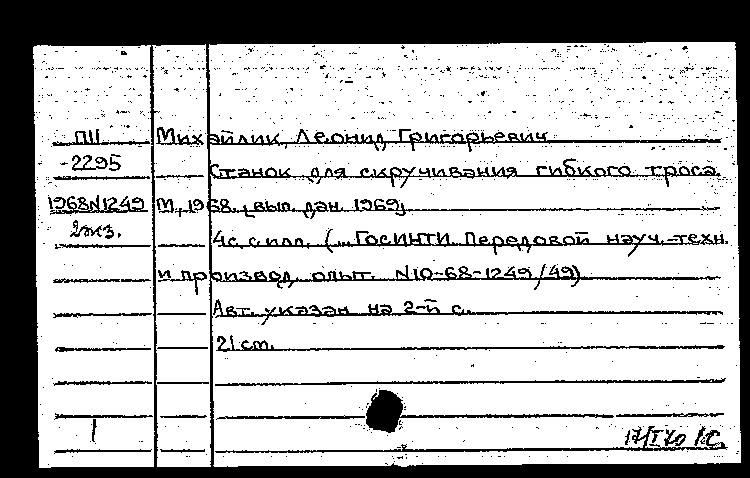 П11 Михайлик, Леонид Григорьевич
-2295 Станок для скручивания гибкого троса.
1968N1249 М., 1968. [вып. дан. 1969]
2экз. 4с. с илл. (... ГОСИНТИ. Передовой науч.-техн.
и производ. опыт. N10-68-1249/49)
Авт. указан на 2-й с.
21 cm.
1
17/I 70